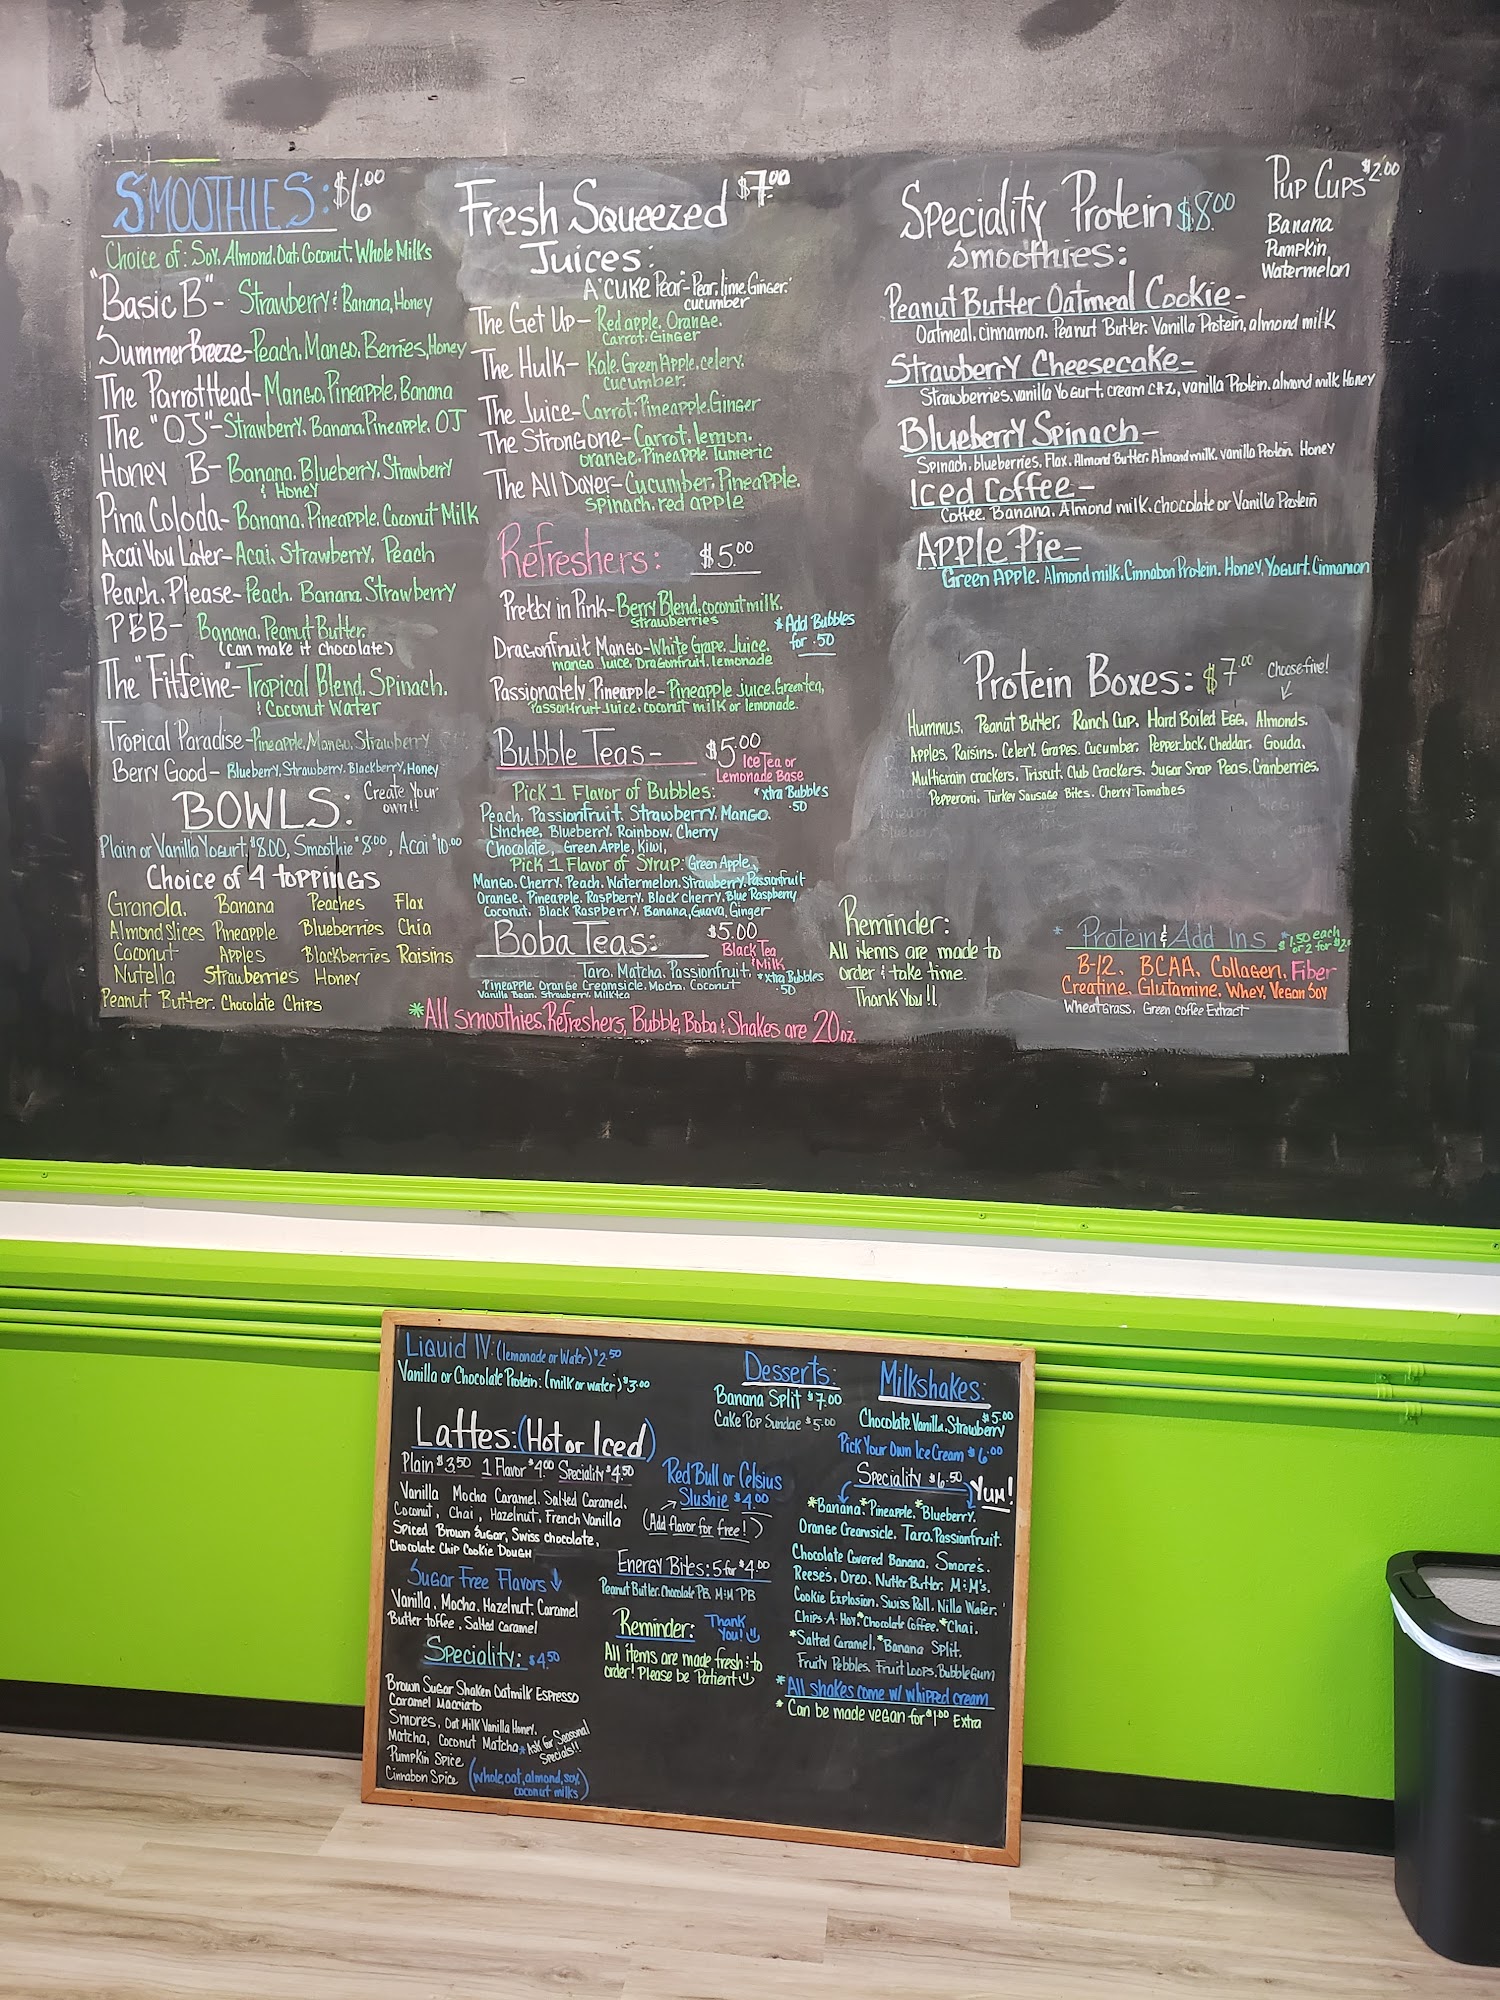 SMOOTHIES: $6.00
Choice of: Soy, Almond, Oat, Coconut, Whole Milks
"Basic B" - Strawberry & Banana, Honey
Summer Breeze - Peach, Mango, Berries, Honey
The ParrotHead - Mango, Pineapple, Banana
The "OJ" - Strawberry, Banana, Pineapple, OJ
Honey B - Banana, Blueberry, Strawberry
& Honey
Pina Coloda - Banana, Pineapple, Coconut Milk
Acai You Later - Acai, Strawberry, Peach
Peach, Please - Peach, Banana, Strawberry
PBB - Banana, Peanut Butter,
(can make it chocolate)
The "Fitfeine" - Tropical Blend, Spinach,
& Coconut Water
Tropical Paradise - Pineapple, Mango, Strawberry
Berry Good - Blueberry, Strawberry, Blackberry, Honey
BOWLS: Create Your
own!!
Plain or Vanilla Yogurt $8.00, Smoothie $8.00, Acai $10.00
Choice of 4 toppings
Granola, Banana Peaches Flax
Almond Slices Pineapple Blueberries Chia
Coconut Apples Blackberries Raisins
Nutella Strawberries Honey
Peanut Butter, Chocolate Chips
Fresh Squeezed $7.00
Juices:
A'CUKE Pear - Pear, lime, Ginger,
cucumber
The Get Up - Red apple, Orange,
Carrot, Ginger
The Hulk - Kale, Green Apple, celery,
cucumber
The Juice - Carrot, Pineapple, Ginger
The StrongOne - Carrot, lemon,
orange, Pineapple, Tumeric
The All Dayer - Cucumber, Pineapple,
spinach, red apple
Refreshers: $5.00
Pretty in Pink - Berry Blend, coconut milk,
strawberries
* Add Bubbles
for .50
Dragonfruit Mango - White Grape Juice,
mango Juice, Dragonfruit, lemonade
Passionately Pineapple - Pineapple Juice, Green tea,
Passionfruit Juice, coconut milk or lemonade
Bubble Teas - $5.00
Ice Tea or
Lemonade Base
Pick 1 Flavor of Bubbles: *xtra Bubbles
.50
Peach, Passionfruit, Strawberry, Mango,
Lynchee, Blueberry, Rainbow, Cherry
Chocolate, Green Apple, Kiwi,
Pick 1 Flavor of Syrup: Green Apple,
Mango, Cherry, Peach, Watermelon, Strawberry, Passionfruit
Orange, Pineapple, Raspberry, Black Cherry, Blue Raspberry
Coconut, Black Raspberry, Banana, Guava, Ginger
Boba Teas: $5.00
Black Tea
& Milk
Taro, Matcha, Passionfruit, *xtra Bubbles
.50
Pineapple, Orange Creamsicle, Mocha, Coconut
Vanilla Bean, Strawberry Milktea
*All smoothies, Refreshers, Bubble, Boba & Shakes are 20oz.
Speciality Protein $8.00
Smoothies:
Peanut Butter Oatmeal Cookie -
Oatmeal, cinnamon, Peanut Butter, Vanilla Protein, almond milk
Strawberry Cheesecake -
Strawberries, vanilla Yogurt, cream chz, vanilla Protein, almond milk, Honey
Blueberry Spinach -
Spinach, blueberries, Flax, Almond Butter, Almond milk, vanilla Protein, Honey
Iced Coffee -
Coffee, Banana, Almond milk, chocolate or Vanilla Protein
Apple Pie -
Green Apple, Almond milk, Cinnabon Protein, Honey, Yogurt, Cinnamon
Pup Cups $2.00
Banana
Pumpkin
Watermelon
Protein Boxes: $7.00 Choose five!
Hummus, Peanut Butter, Ranch Cup, Hard Boiled Egg, Almonds,
Apples, Raisins, Celery, Grapes, Cucumber, Pepperjack, Cheddar, Gouda,
Multigrain crackers, Triscut, Club Crackers, Sugar Snap Peas, Cranberries,
Pepperoni, Turkey Sausage Bites, Cherry Tomatoes
Reminder:
All items are made to
order & take time.
Thank You!!
* Protein & Add Ins * $1.50 each
or 2 for $2
B-12, BCAA, Collagen, Fiber
Creatine, Glutamine, Whey, Vegan Soy
Wheatgrass, Green Coffee Extract
Liquid IV: (lemonade or Water) $2.50
Vanilla or Chocolate Protein: (milk or water) $3.00
Lattes: (Hot or Iced)
Plain $3.50 1 Flavor $4.00 Speciality $4.50
Vanilla Mocha Caramel, Salted Caramel,
Coconut, Chai, Hazelnut, French Vanilla
Spiced Brown Sugar, Swiss chocolate,
Chocolate Chip Cookie Dough
Sugar Free Flavors
Vanilla, Mocha, Hazelnut, Caramel
Butter toffee, Salted Caramel
Speciality: $4.50
Brown Sugar Shaken Oatmilk Espresso
Caramel Macciato
Smores, Oat Milk Vanilla Honey,
Matcha, Coconut Matcha * Ask for Seasonal
Specials!!
Pumpkin Spice
Cinnabon Spice (whole, oat, almond, soy,
coconut milks)
Red Bull or Celsius
Slushie $4.00
(Add flavor for free!)
Energy Bites: 5 for $4.00
Peanut Butter, Chocolate PB, M&M PB
Reminder: Thank
You!
All items are made fresh & to
order! Please be Patient
Desserts:
Banana Split $7.00
Cake Pop Sundae $5.00
Milkshakes:
$5.00
Chocolate, Vanilla, Strawberry
Pick Your Own Ice Cream $6.00
Speciality $6.50 YUM!
*Banana, *Pineapple, *Blueberry,
Orange Creamsicle, Taro, Passionfruit,
Chocolate Covered Banana, Smore's,
Reese's, Oreo, Nutter Butter, M&M's,
Cookie Explosion, Swiss Roll, Nilla Wafer,
Chips-A-Hoy, *Chocolate Coffee, *Chai,
*Salted Caramel, *Banana Split,
Fruity Pebbles, Fruit Loops, Bubble Gum
*All shakes come w/ whipped cream
* Can be made vegan for $1.00 Extra